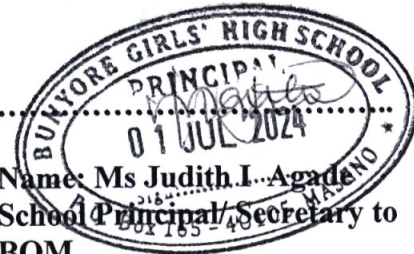 BUNYORE GIRLS' HIGH SCHOOL
PRINCIPAL
01 JUL 2024
Name: Ms Judith I. Agade
School Principal/Secretary to
BOM